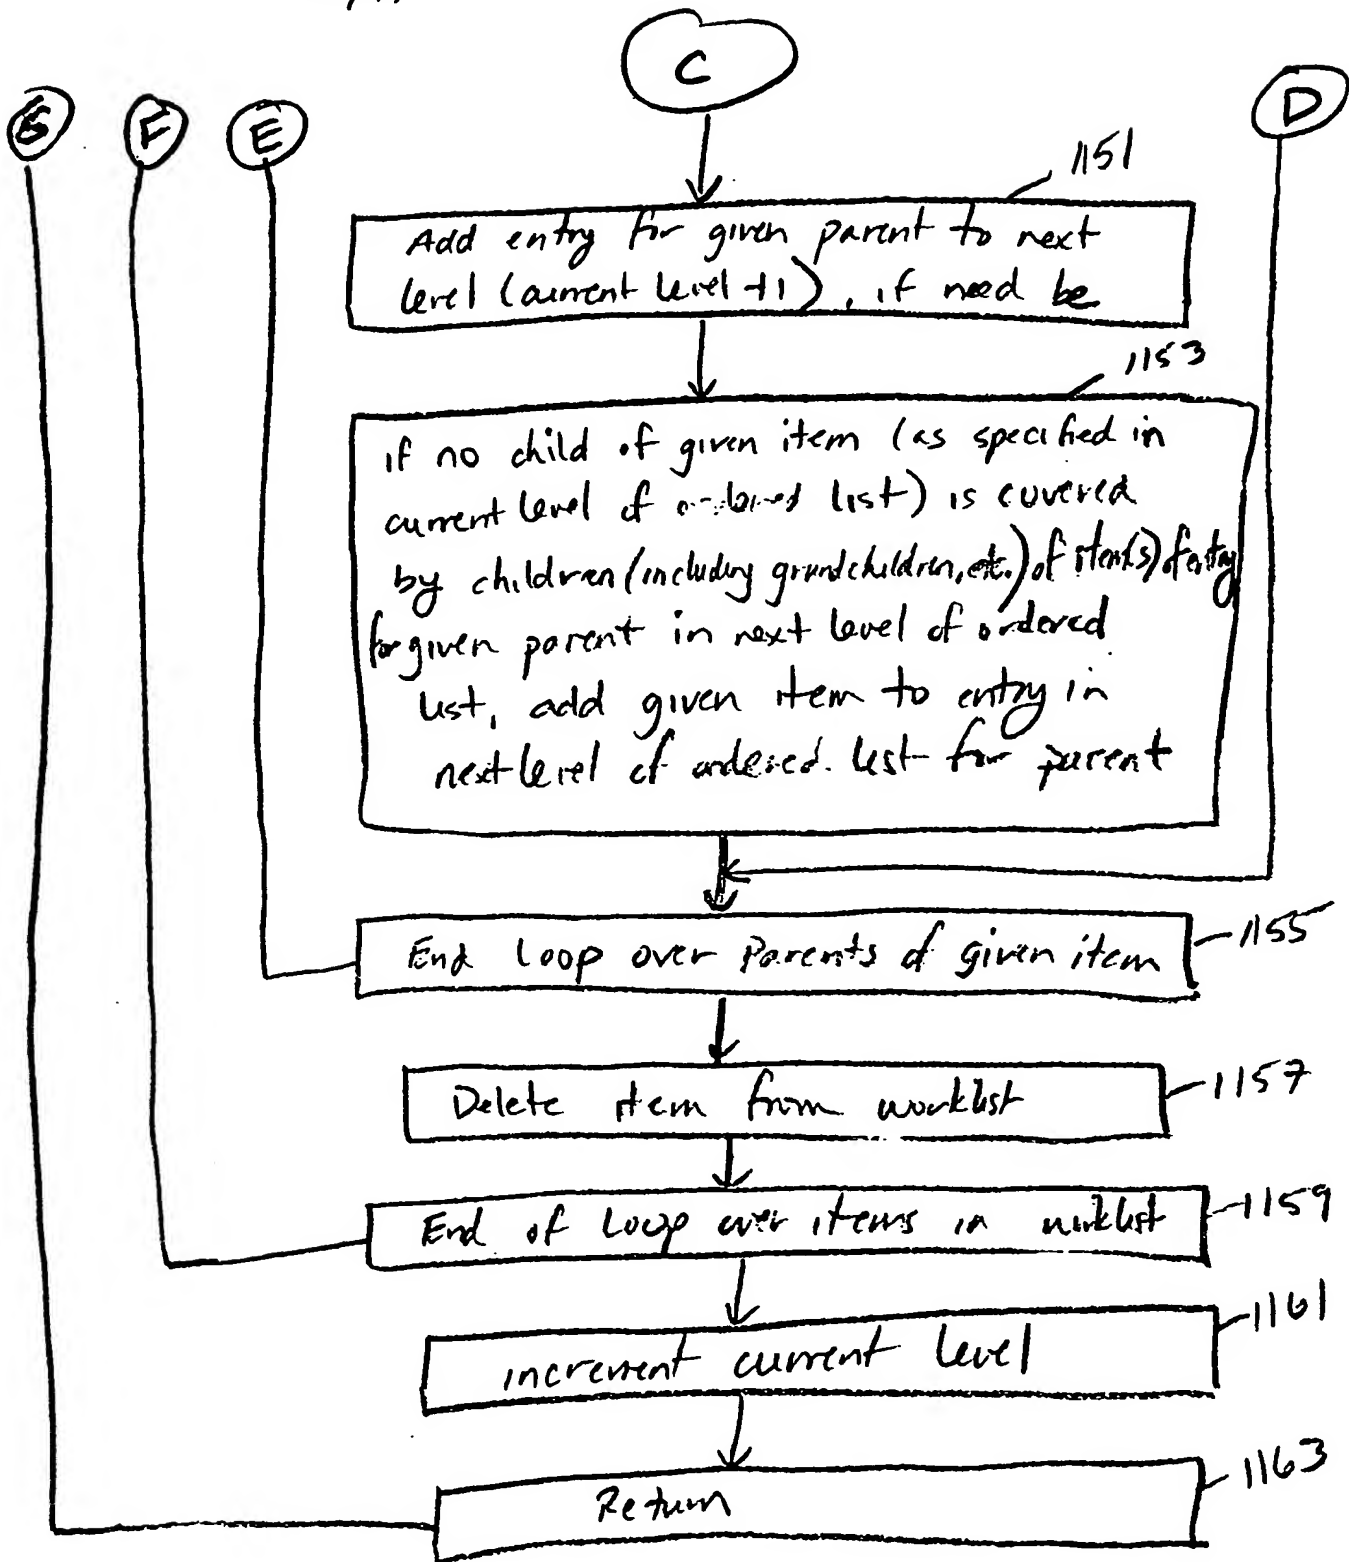 C
D
F
E
1151
Add entry for given parent to next
level (current level +1), if need be
1153
if no child of given item (as specified in
current level of ordered list) is covered
by children (including grandchildren, etc.) of item(s) of entry
for given parent in next level of ordered
list, add given item to entry in
next level of ordered list for parent
End Loop over Parents of given item
1155
Delete item from worklist
1157
End of Loop over items in worklist
1159
increment current level
1161
Return
1163